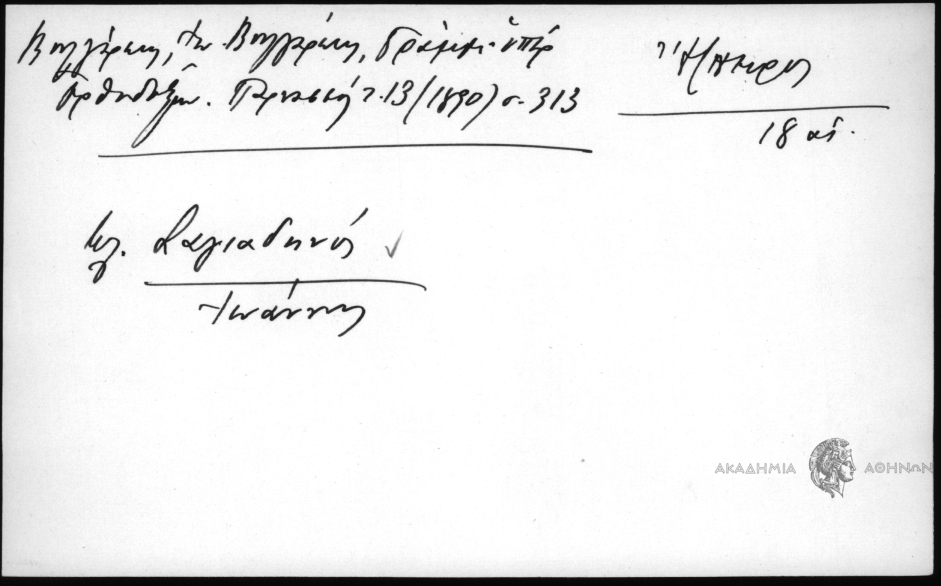 Βουλγάρεως, Βουλγάρεως, ὑπὲρ
Ὀρθοδόξων. Παρνασσός τ. 13 (1890) σ. 313
Ἤπειρος
18 αἰ.
Σαγιαδινός
Ἰωάννης
ΑΚΑΔΗΜΙΑ ΑΘΗΝΩΝ